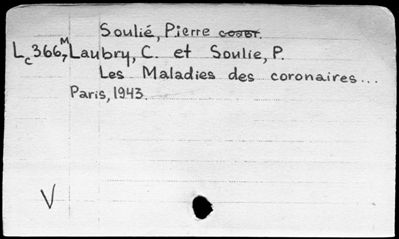 Soulié, Pierre
Lc366,7M Laubry, C. et Soulie, P.
Les Maladies des coronaires...
Paris, 1943.
V